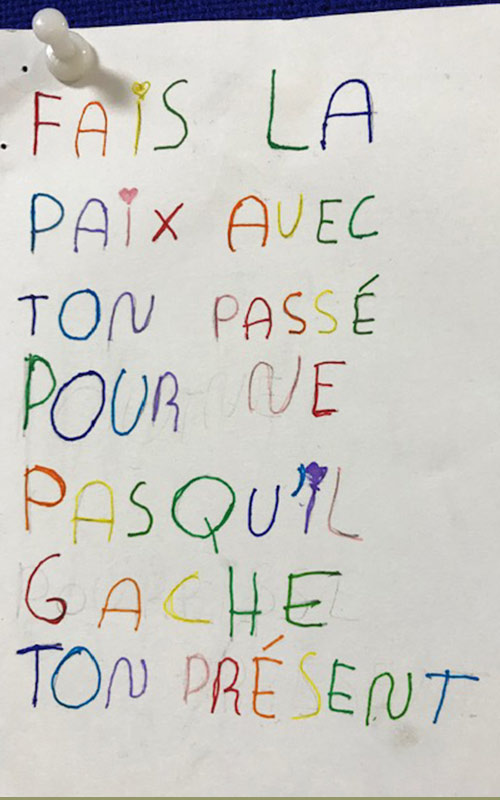 FAIS LA
PAIX AVEC
TON PASSÉ
POUR NE
PAS QU'IL
GACHE
TON PRÉSENT